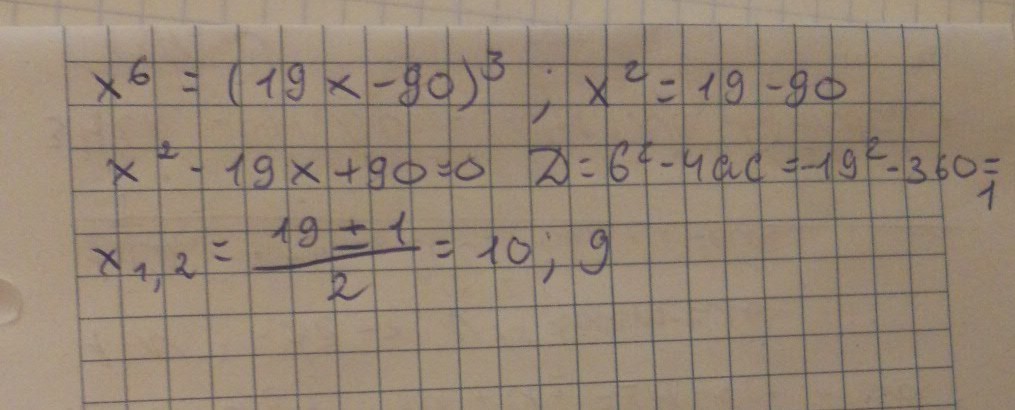 x⁶ = (19x - 90)³ ; x² = 19 - 90
x² - 19x + 90 = 0 D = b² - 4ac = -19² - 360 = 1
x₁,₂ = (19 ± 1)/2 = 10; 9